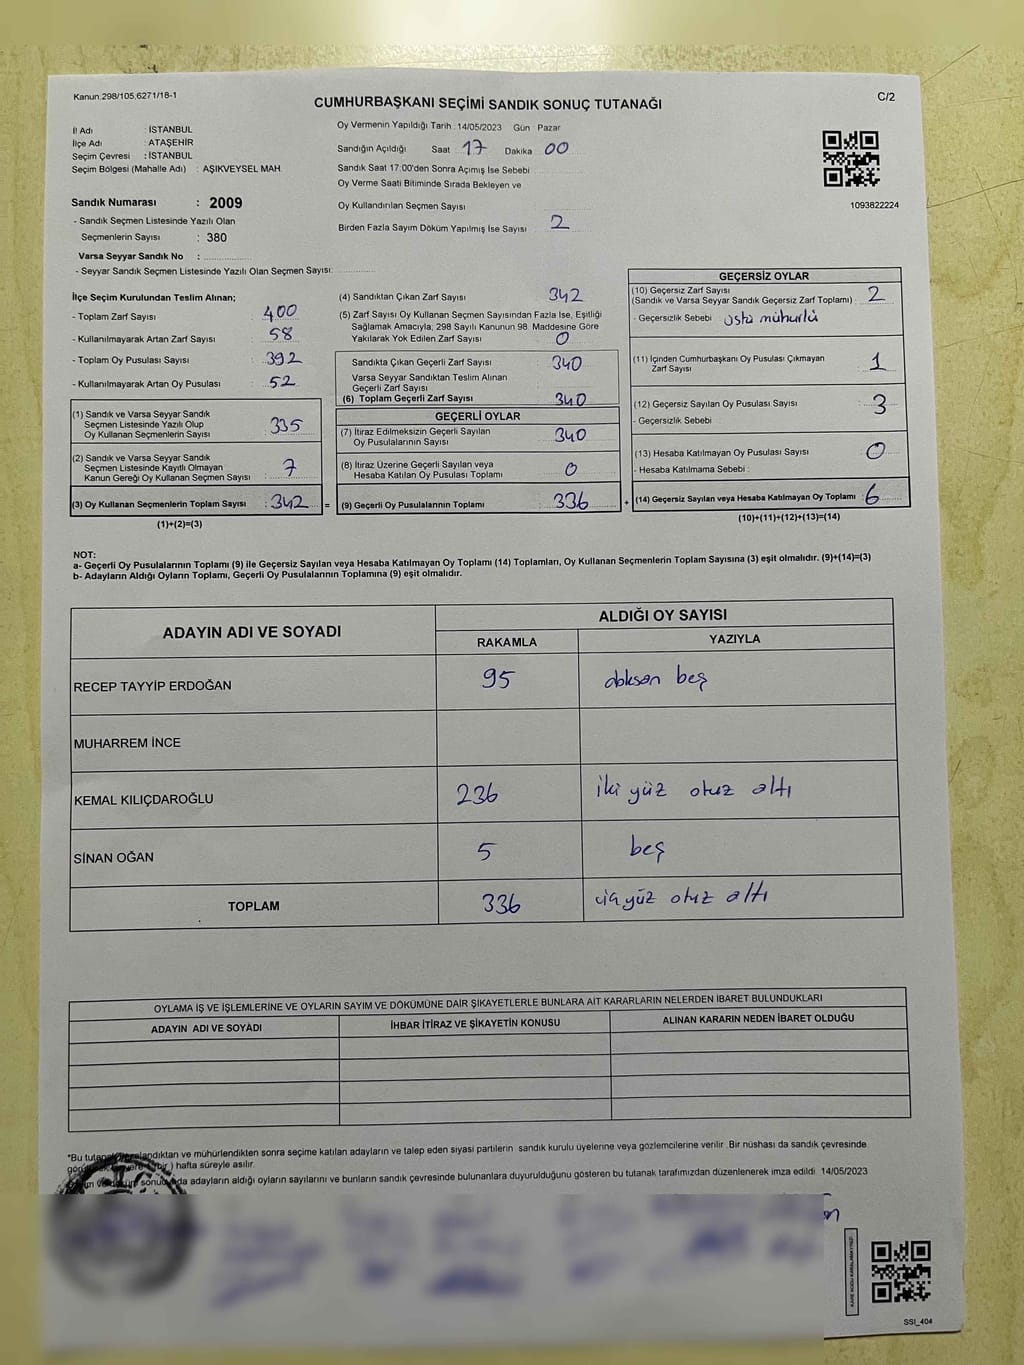 Kanun,298/105,6271/18-1
C/2
CUMHURBAŞKANI SEÇİMİ SANDIK SONUÇ TUTANAĞI
İl Adı : İSTANBUL
İlçe Adı : ATAŞEHİR
Seçim Çevresi : İSTANBUL
Seçim Bölgesi (Mahalle Adı) : AŞIKVEYSEL MAH.
Sandık Numarası : 2009
- Sandık Seçmen Listesinde Yazılı Olan
Seçmenlerin Sayısı : 380
Varsa Seyyar Sandık No :
- Seyyar Sandık Seçmen Listesinde Yazılı Olan Seçmen Sayısı:
Oy Vermenin Yapıldığı Tarih : 14/05/2023 Gün : Pazar
Sandığın Açıldığı Saat 17 Dakika 00
Sandık Saat 17:00'den Sonra Açımış İse Sebebi
Oy Verme Saati Bitiminde Sırada Bekleyen ve
Oy Kullandırılan Seçmen Sayısı
Birden Fazla Sayım Döküm Yapılmış İse Sayısı 2
1093822224
İlçe Seçim Kurulundan Teslim Alınan;
- Toplam Zarf Sayısı : 400
- Kullanılmayarak Artan Zarf Sayısı : 58
- Toplam Oy Pusulası Sayısı : 392
- Kullanılmayarak Artan Oy Pusulası : 52
(1) Sandık ve Varsa Seyyar Sandık
Seçmen Listesinde Yazılı Olup
Oy Kullanan Seçmenlerin Sayısı : 335
(2) Sandık ve Varsa Seyyar Sandık
Seçmen Listesinde Kayıtlı Olmayan
Kanun Gereği Oy Kullanan Seçmen Sayısı : 7
(3) Oy Kullanan Seçmenlerin Toplam Sayısı : 342 =
(1)+(2)=(3)
(4) Sandıktan Çıkan Zarf Sayısı 342
(5) Zarf Sayısı Oy Kullanan Seçmen Sayısından Fazla İse, Eşitliği
Sağlamak Amacıyla; 298 Sayılı Kanunun 98. Maddesine Göre
Yakılarak Yok Edilen Zarf Sayısı 0
Sandıkta Çıkan Geçerli Zarf Sayısı 340
Varsa Seyyar Sandıktan Teslim Alınan
Geçerli Zarf Sayısı
(6) Toplam Geçerli Zarf Sayısı 340
GEÇERLİ OYLAR
(7) İtiraz Edilmeksizin Geçerli Sayılan
Oy Pusulalarının Sayısı 340
(8) İtiraz Üzerine Geçerli Sayılan veya
Hesaba Katılan Oy Pusulası Toplamı 0
(9) Geçerli Oy Pusulalarının Toplamı 336 +
GEÇERSİZ OYLAR
(10) Geçersiz Zarf Sayısı
(Sandık ve Varsa Seyyar Sandık Geçersiz Zarf Toplamı) : 2
- Geçersizlik Sebebi : üstü mühürlü
(11) İçinden Cumhurbaşkanı Oy Pusulası Çıkmayan
Zarf Sayısı : 1
(12) Geçersiz Sayılan Oy Pusulası Sayısı : 3
- Geçersizlik Sebebi :
(13) Hesaba Katılmayan Oy Pusulası Sayısı : 0
- Hesaba Katılmama Sebebi :
(14) Geçersiz Sayılan veya Hesaba Katılmayan Oy Toplamı : 6
(10)+(11)+(12)+(13)=(14)
NOT:
a- Geçerli Oy Pusulalarının Toplamı (9) ile Geçersiz Sayılan veya Hesaba Katılmayan Oy Toplamı (14) Toplamları, Oy Kullanan Seçmenlerin Toplam Sayısına (3) eşit olmalıdır. (9)+(14)=(3)
b- Adayların Aldığı Oyların Toplamı, Geçerli Oy Pusulalarının Toplamına (9) eşit olmalıdır.
ADAYIN ADI VE SOYADI ALDIĞI OY SAYISI
RAKAMLA YAZIYLA
RECEP TAYYİP ERDOĞAN 95 doksan beş
MUHARREM İNCE
KEMAL KILIÇDAROĞLU 236 iki yüz otuz altı
SİNAN OĞAN 5 beş
TOPLAM 336 üçyüz otuz altı
OYLAMA İŞ VE İŞLEMLERİNE VE OYLARIN SAYIM VE DÖKÜMÜNE DAİR ŞİKAYETLERLE BUNLARA AİT KARARLARIN NELERDEN İBARET BULUNDUKLARI
ADAYIN ADI VE SOYADI İHBAR İTİRAZ VE ŞİKAYETİN KONUSU ALINAN KARARIN NEDEN İBARET OLDUĞU
*Bu ve mühürlendikten sonra seçime katılan adayların ve talep eden siyasi partilerin sandık kurulu üyelerine veya gözlemcilerine verilir. Bir nüshası da sandık çevresinde
hafta süreyle asılır.
adayların aldığı oyların sayılarını ve bunların sandık çevresinde bulunanlara duyurulduğunu gösteren bu tutanak tarafımızdan düzenlenerek imza edildi. 14/05/2023
KARE KODU KARALAMAYINIZ!
SSI_404